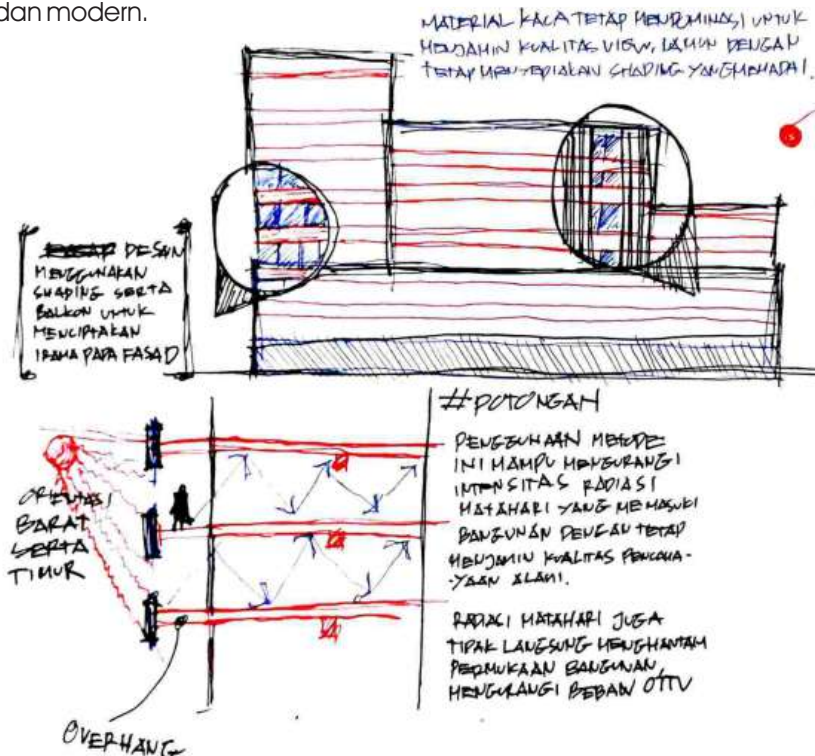 dan modern.
MATERIAL KACA TETAP MENDOMINASI UNTUK
MENJAMIN KUALITAS VIEW, NAMUN DENGAN
TETAP MENYEDIAKAN SHADING YANG MEMADAI.
DESAIN
MENGGUNAKAN
SHADING SERTA
BALKON UNTUK
MENCIPTAKAN
IRAMA PADA FASAD
#POTONGAN
PENGGUNAAN METODE
INI MAMPU MENGURANGI
INTENSITAS RADIASI
MATAHARI YANG MEMASUKI
BANGUNAN DENGAN TETAP
MENJAMIN KUALITAS PENCAHA-
-YAAN ALAMI.
RADIASI MATAHARI JUGA
TIDAK LANGSUNG MENGHANTAM
PERMUKAAN BANGUNAN,
MENGURANGI BEBAN OTTV
ORIENTASI
BARAT
SERTA
TIMUR
OVERHANG